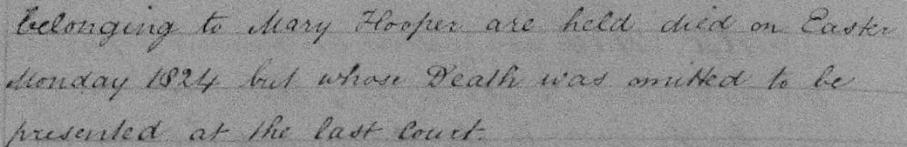 belonging to Mary Hooper are held died on Easter
Monday 1824 but whose Death was omitted to be
presented at the last Court.